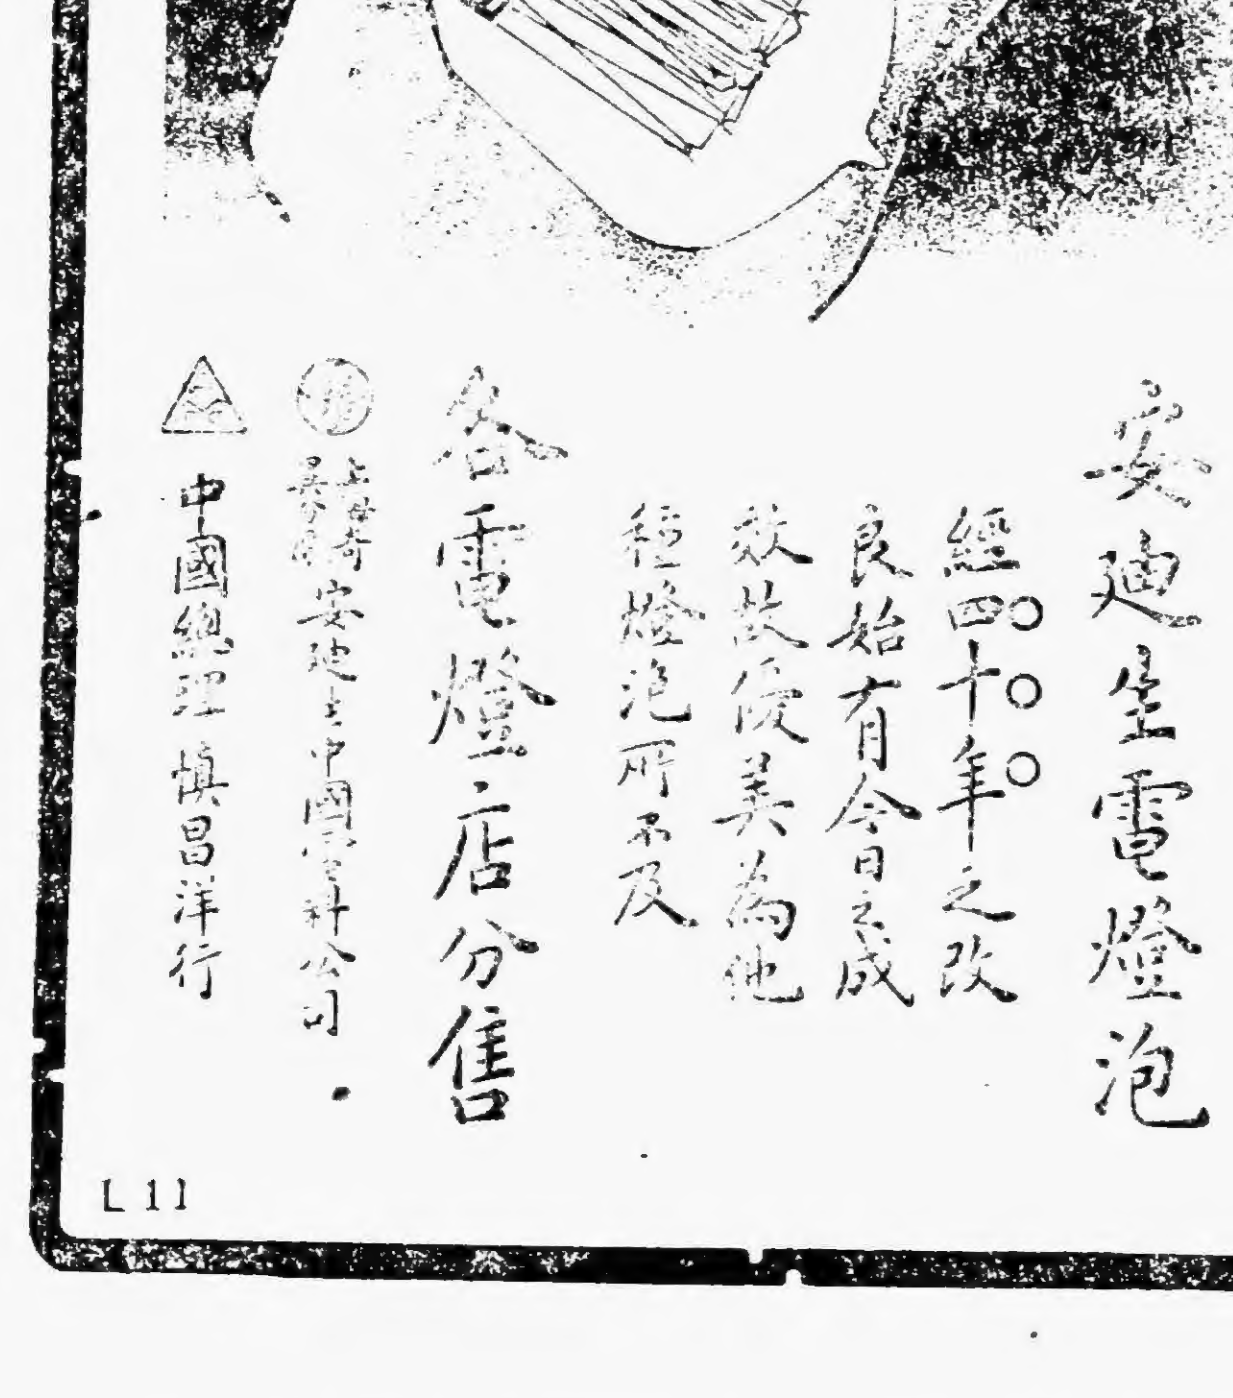 安廸生電燈泡
經四十年之改
良始有今日之成
效故優美為他
種燈泡所不及
各電燈店分售
安廸生中國電料公司
中國總理 慎昌洋行
L 11